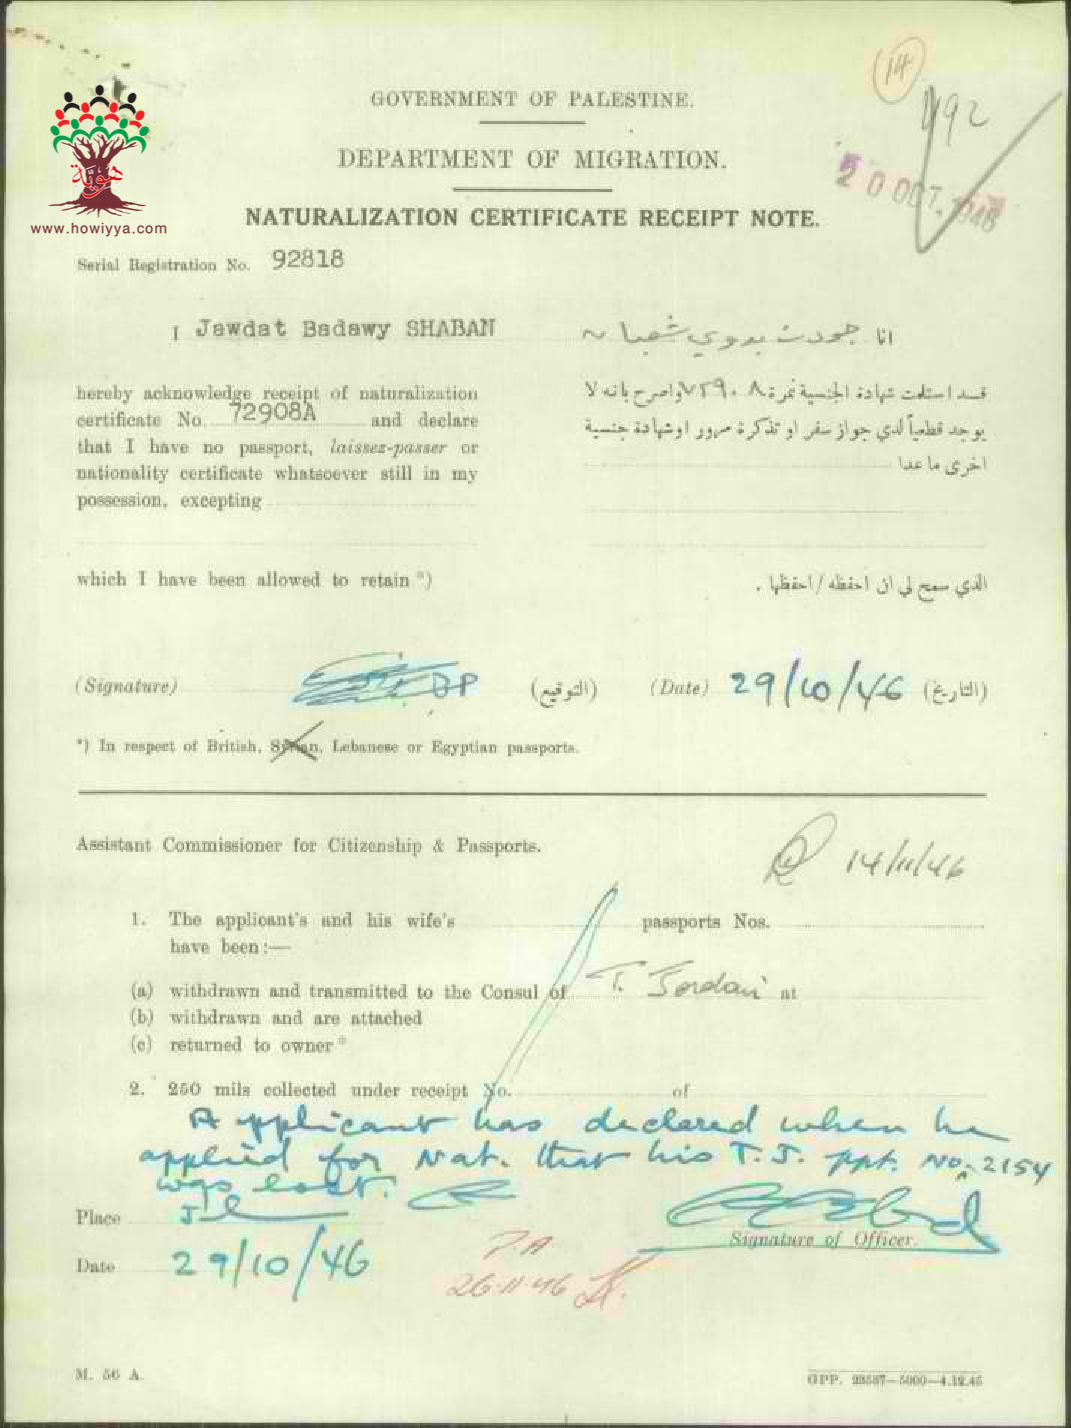 14
192
GOVERNMENT OF PALESTINE.
DEPARTMENT OF MIGRATION.
20 OCT. 1946
NATURALIZATION CERTIFICATE RECEIPT NOTE.
هوية
www.howiyya.com
Serial Registration No. 92818
I Jawdat Badawy SHABAN
انا جودت بدوي شعبان
hereby acknowledge receipt of naturalization
certificate No. 72908A and declare
that I have no passport, laissez-passer or
nationality certificate whatsoever still in my
possession, excepting
قد استلمت شهادة الجنسية نمرة ٧٢٩٠٨ واصرح بانه لا
يوجد قطعياً لدي جواز سفر او تذكرة مرور او شهادة جنسية
اخرى ما عدا
which I have been allowed to retain *)
الذي سمح لي ان احفظه / احفظها .
(Signature) (التوقيع) (Date) 29/10/46 (التاريخ)
*) In respect of British, Syrian, Lebanese or Egyptian passports.
Assistant Commissioner for Citizenship & Passports.
14/11/46
1. The applicant's and his wife's passports Nos.
have been :—
(a) withdrawn and transmitted to the Consul of T. Jordan at
(b) withdrawn and are attached
(c) returned to owner *
2. 250 mils collected under receipt No. of
Applicant has declared when he
applied for Nat. that his T.J. ppt. No. 2154
was lost.
Place
Signature of Officer.
Date 29/10/46
P.A
26.11.46
M. 56 A.
GPP. 23587—5000—4.12.45